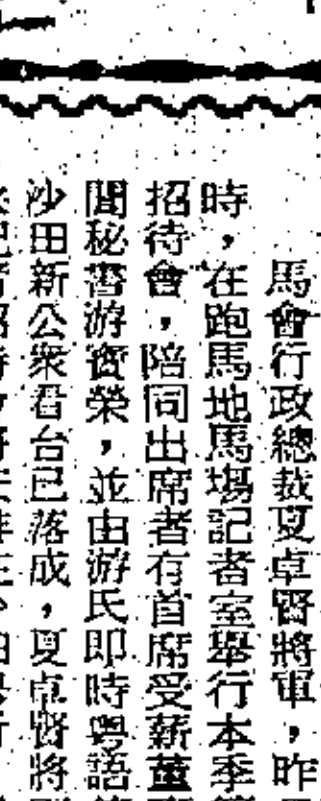 馬會行政總裁夏卓賢將軍，昨
時，在跑馬地馬場記者室舉行本季
招待會，陪同出席者有首席受薪董
聞秘書游資榮，並由游氏即時粵語
沙田新公衆看台已落成，夏卓賢將